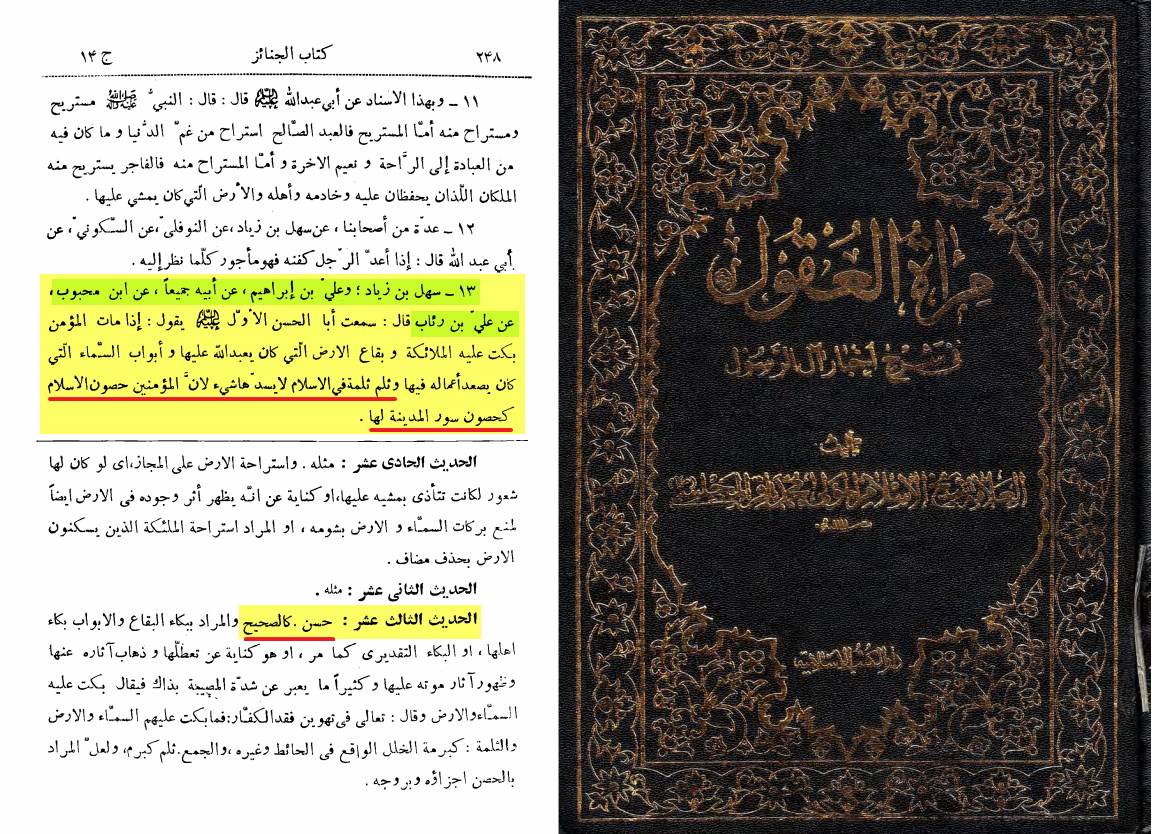 ٢٤٨ كتاب الجنائز ج ١٤
١١ ـ وبهذا الاسناد عن أبي عبدالله عليه السلام قال : قال : النبي صلى الله عليه وآله مستريح
ومستراح منه أمّا المستريح فالعبد الصّالح استراح من غمّ الدّنيا و ما كان فيه
من العبادة إلى الرّاحة و نعيم الاخرة و أمّا المستراح منه فالفاجر يستريح منه
الملكان اللّذان يحفظان عليه وخادمه وأهله والأرض الّتي كان يمشي عليها .
١٢ ـ عدّة من أصحابنا ، عن سهل بن زياد ، عن النوفليّ ، عن السّكونيّ ، عن
أبي عبد الله قال : إذا أعدّ الرّجل كفنه فهو مأجور كلّما نظر إليه .
١٣ ـ سهل بن زياد ؛ وعليّ بن إبراهيم ، عن أبيه جميعاً ، عن ابن محبوب ،
عن عليّ بن رئاب قال : سمعت أبا الحسن الأوّل عليه السلام يقول : إذا مات المؤمن
بكت عليه الملائكة و بقاع الارض الّتي كان يعبدالله عليها و أبواب السّماء الّتي
كان يصعد أعماله فيها وثلم ثلمة في الاسلام لايسدّها شيء لانّ المؤمنين حصون الاسلام
كحصون سور المدينة لها .
الحديث الحادى عشر : مثله . واستراحة الارض على المجاز، اى لو كان لها
شعور لكانت تتأذى بمشيه عليها، او كناية عن انّه يظهر أثر وجوده فى الارض ايضاً
لمنع بركات السمّاء و الارض بشومه ، او المراد استراحة الملئكة الذين يسكنون
الارض بحذف مضاف .
الحديث الثانى عشر : مثله .
الحديث الثالث عشر : حسن . كالصحيح والمراد ببكاء البقاع والابواب بكاء
اهلها ، او البكاء التقديرى كما مر ، او هو كناية عن تعطلّها و ذهاب آثاره عنها
وظهور آثار موته عليها و كثيراً ما يعبر عن شدّة المصيبة بذاك فيقال بكت عليه
السمّاء والارض وقال : تعالى فى تهوين فقد الكفّار: فما بكت عليهم السمّاء والارض
والثلمة : كبرمة الخلل الواقع فى الحائط وغيره ، والجمع. ثلم كبرم، ولعلّ المراد
بالحصن اجزاؤه وبروجه .
مرآة العقول
في شرح أخبار آل الرسول
تأليف
دار الكتب الإسلامية